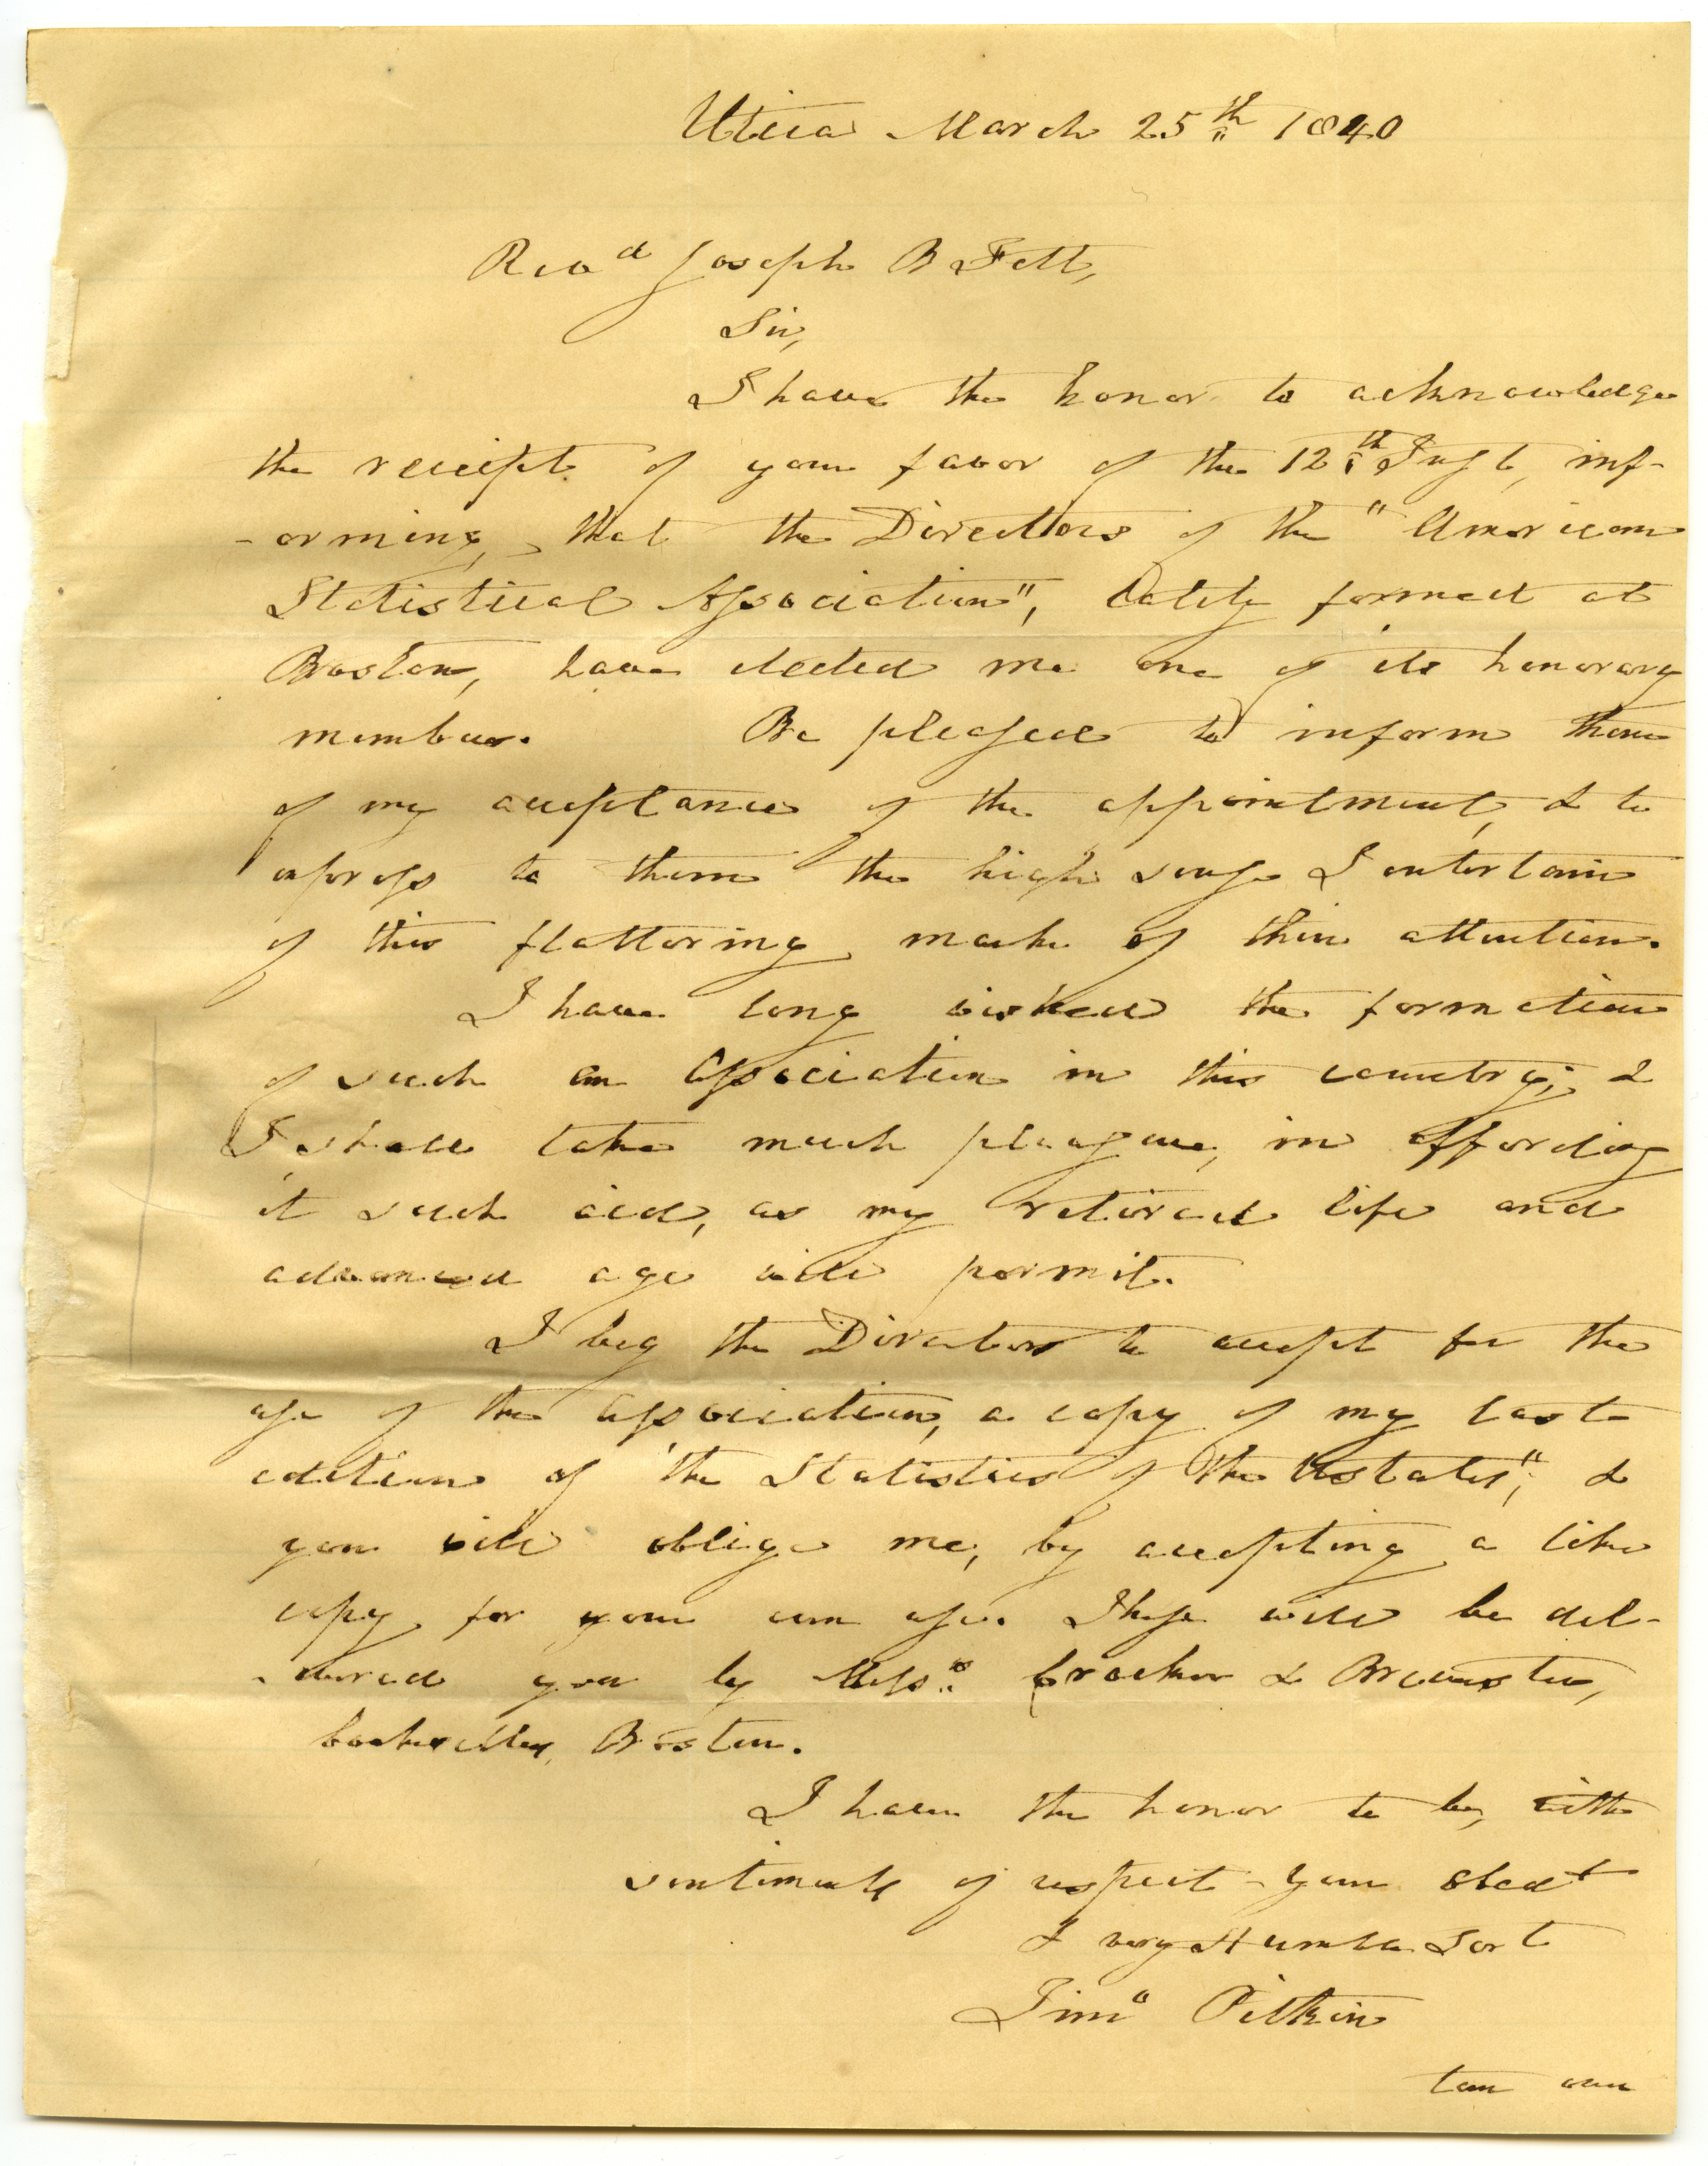 Utica March 25th 1840
Revd Joseph B Felt,
Sir,
I have the honor to acknowledge
the receipt of your favor of the 12th Inst, inf-
-orming, that the Directors of the "American
Statistical Association", lately formed at
Boston, have elected me one of its honorary
members. Be pleased to inform them
of my acceptance of the appointment, & to
express to them the high sense I entertain
of this flattering mark of their attention.
I have long wished the formation
of such an Association in this country; &
I shall take much pleasure, in affording
it such aid, as my retired life and
advanced age will permit.
I beg the Directors to accept for the
use of the Association, a copy of my last
edition of "the Statistics of the UStates", &
you will oblige me, by accepting a like
copy for your own use. These will be del-
-ivered you by Messrs Crocker & Brewster,
booksellers, Boston.
I have the honor to be, with
sentiments of respect - your obedt
& very Humble Sert
Timo Pitkin
turn over